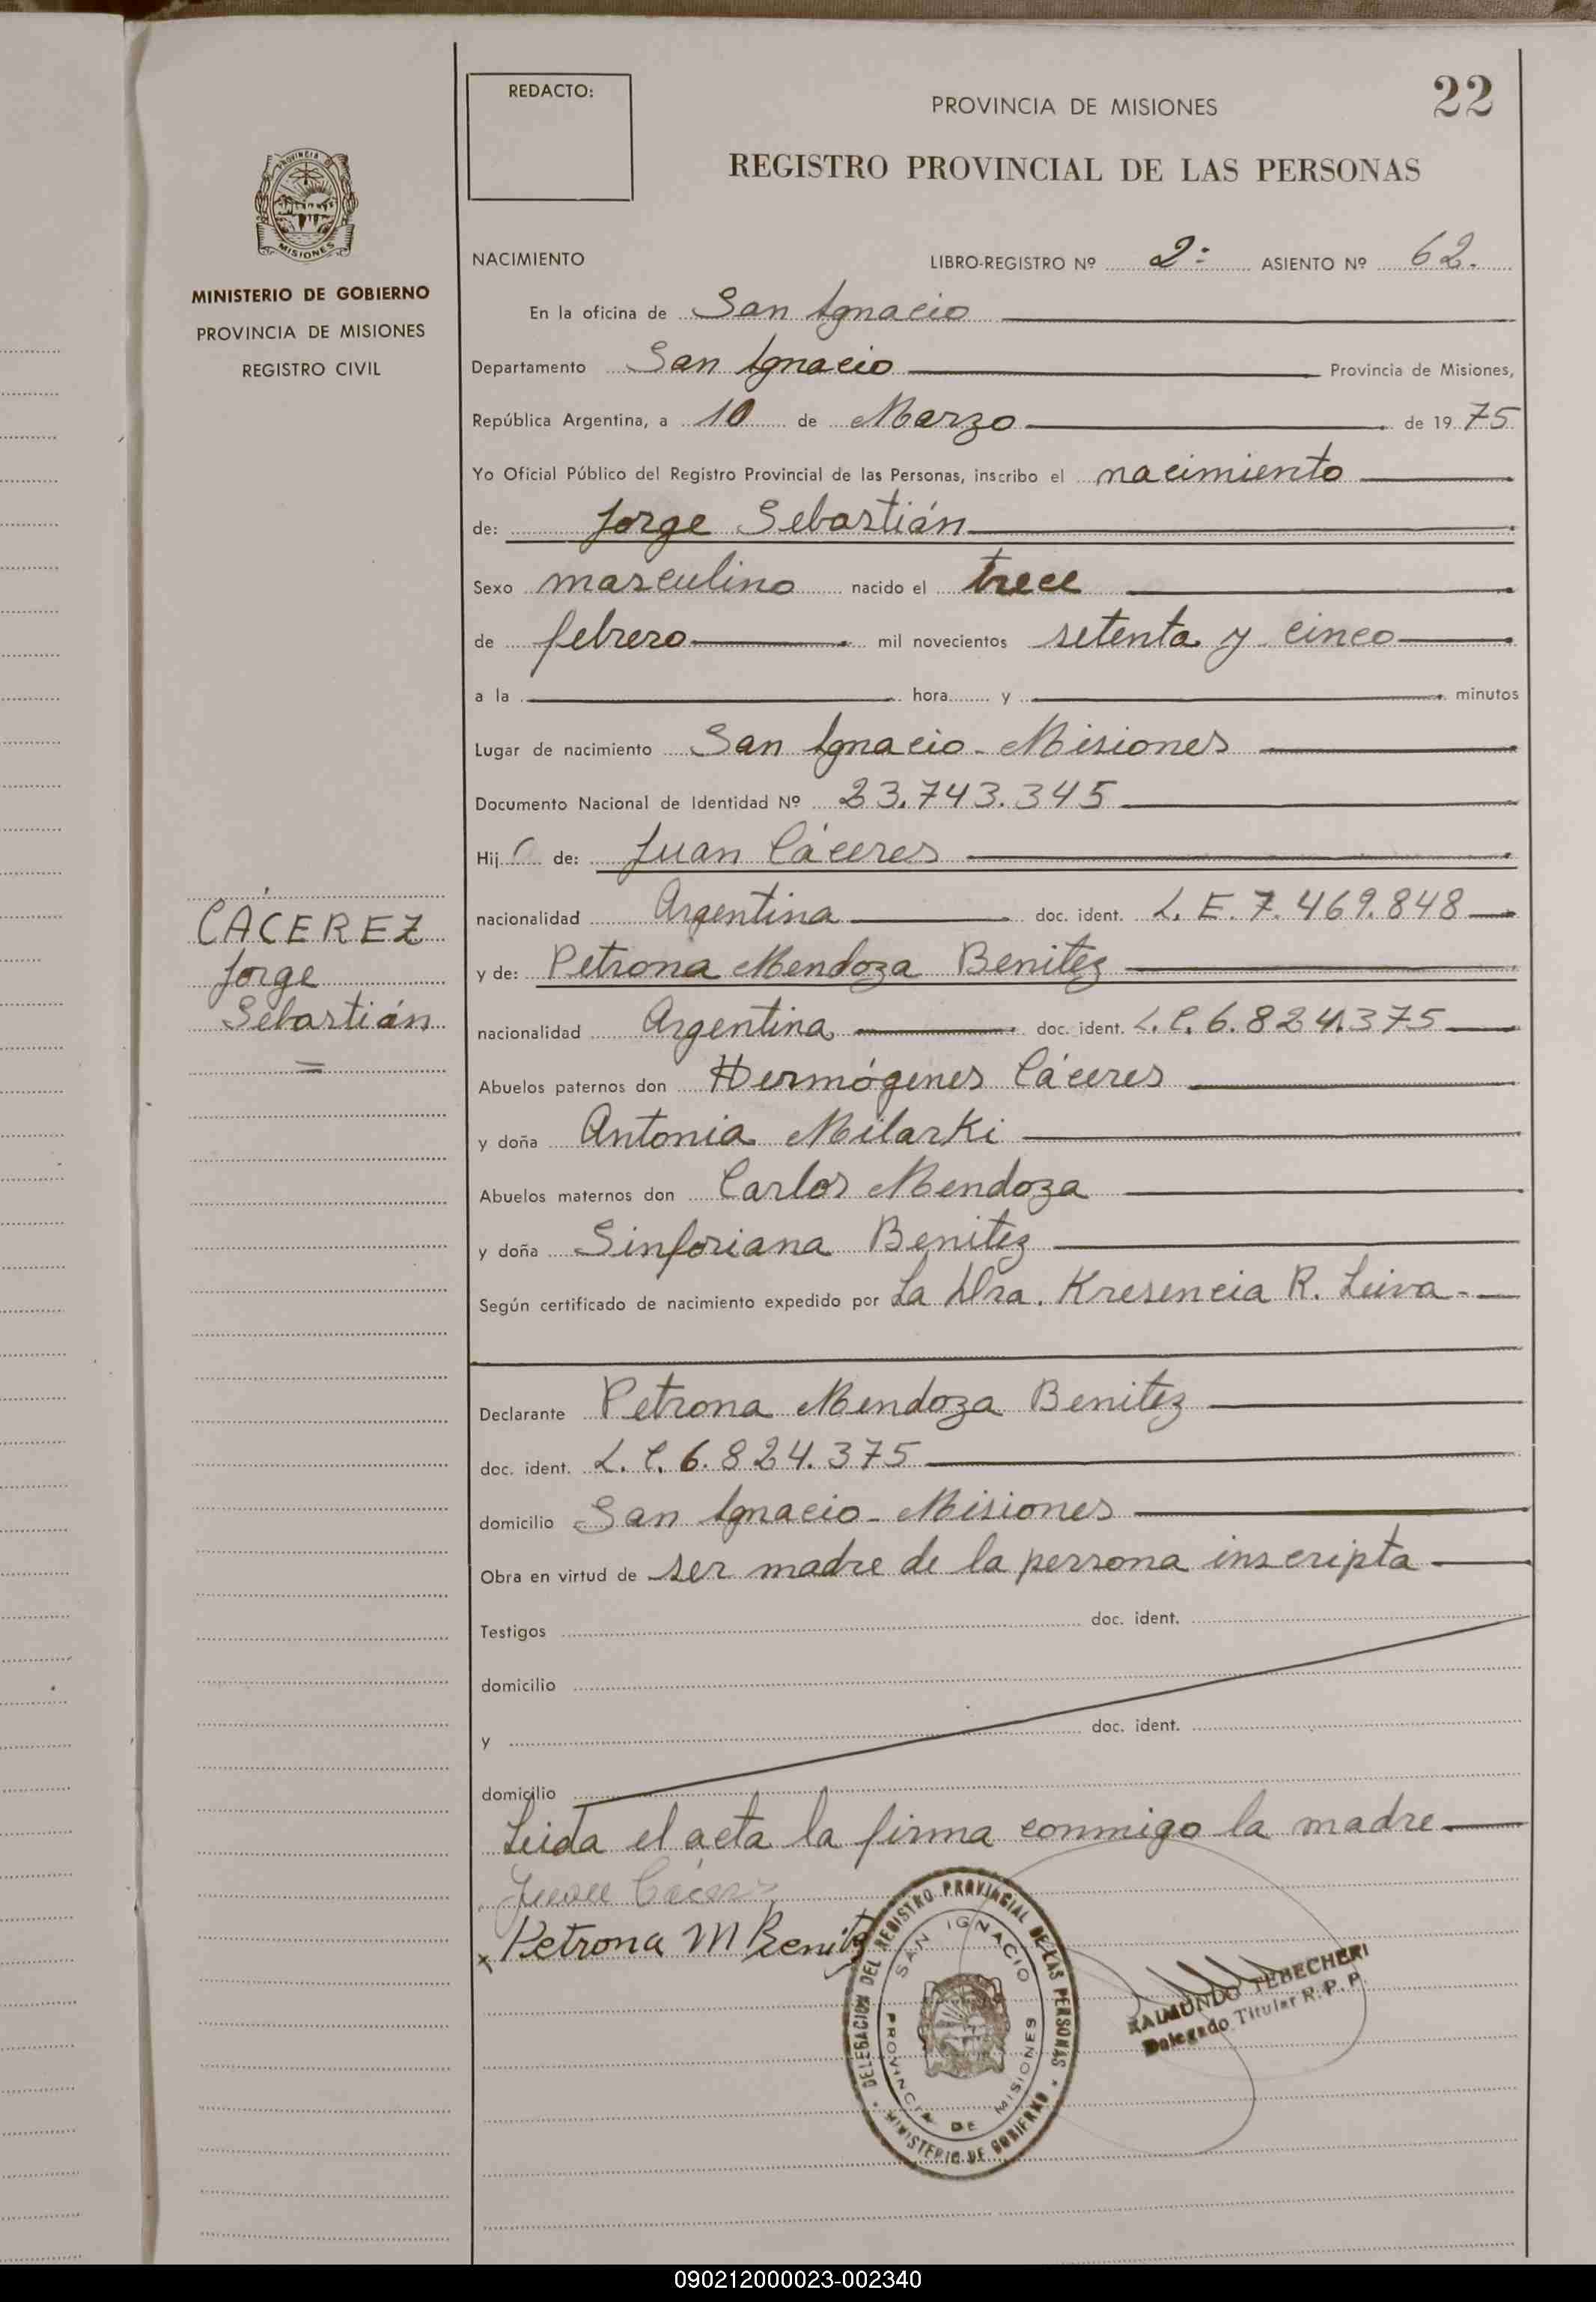 REDACTO:
PROVINCIA DE MISIONES
22
REGISTRO PROVINCIAL DE LAS PERSONAS
PROVINCIA DE
MISIONES
MINISTERIO DE GOBIERNO
PROVINCIA DE MISIONES
REGISTRO CIVIL
NACIMIENTO LIBRO-REGISTRO Nº 2º ASIENTO Nº 62.
En la oficina de San Ignacio
Departamento San Ignacio Provincia de Misiones,
República Argentina, a 10 de Marzo de 1975
Yo Oficial Público del Registro Provincial de las Personas, inscribo el nacimiento
de: Jorge Sebastián
Sexo masculino nacido el trece
de febrero mil novecientos setenta y cinco
a la hora y minutos
Lugar de nacimiento San Ignacio - Misiones
Documento Nacional de Identidad Nº 23.743.345
Hijo de: Juan Cáceres
nacionalidad Argentina doc. ident. L. E. 7.469.848
y de: Petrona Mendoza Benitez
nacionalidad Argentina doc. ident. L.C. 6.824.375
Abuelos paternos don Hermógenes Cáceres
y doña Antonia Milarki
Abuelos maternos don Carlos Mendoza
y doña Sinforiana Benitez
Según certificado de nacimiento expedido por La Dra. Kresencia R. Leiva.-
CÁCEREZ
Jorge
Sebastián
=
Declarante Petrona Mendoza Benitez
doc. ident. L. C. 6.824.375
domicilio San Ignacio - Misiones
Obra en virtud de ser madre de la persona inscripta
Testigos doc. ident.
domicilio
y doc. ident.
domicilio
Leida el acta la firma conmigo la madre
Juan Cáceres
x Petrona M Benitez
DELEGACION DEL REGISTRO PROVINCIAL DE LAS PERSONAS
* MINISTERIO DE GOBIERNO *
SAN IGNACIO
PROVINCIA DE MISIONES
RAIMUNDO TEBECHERI
Delegado Titular R.P.P.
090212000023-002340